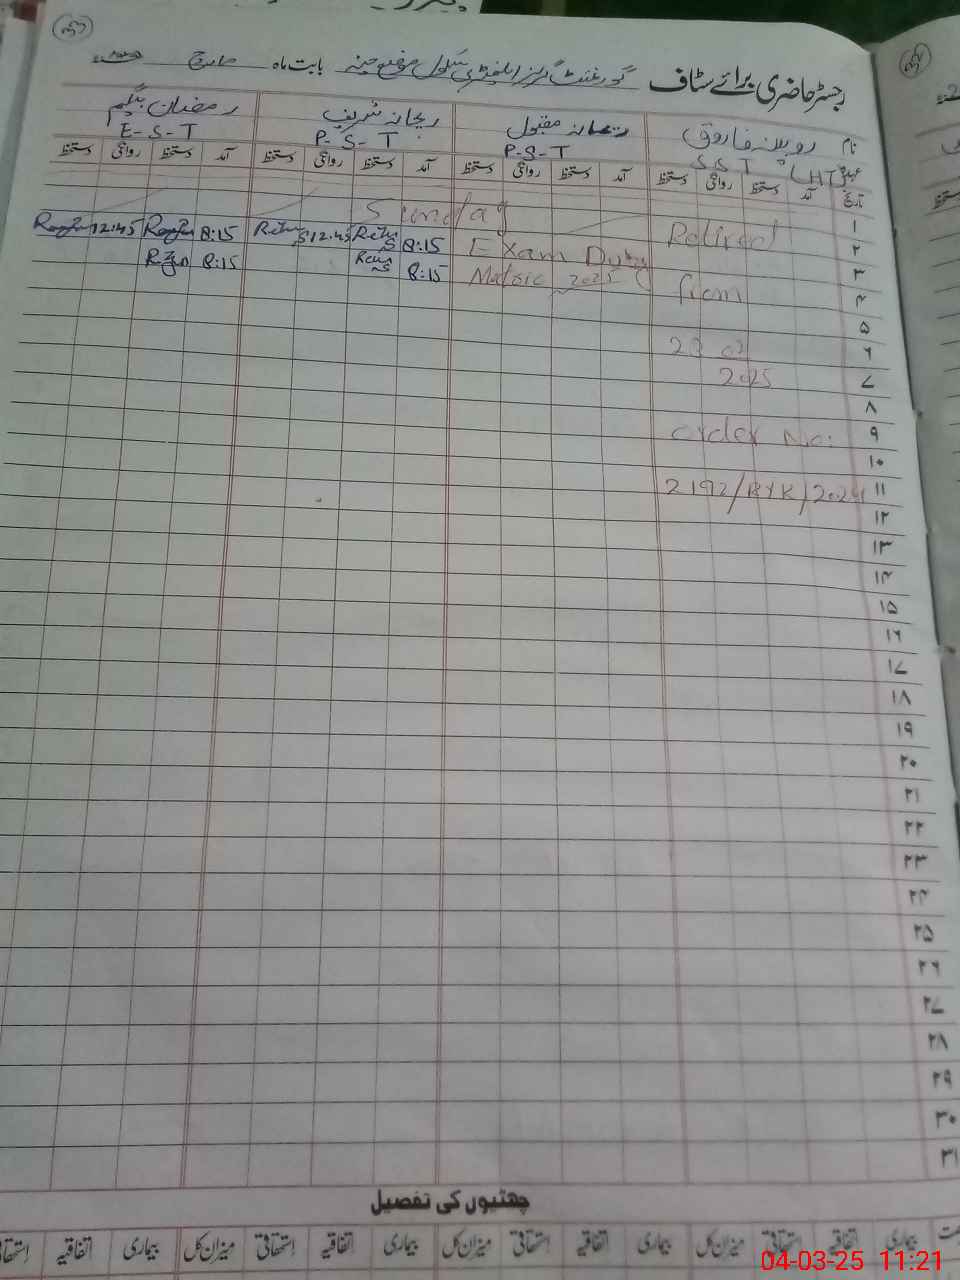 رجسٹر حاضری برائے سٹاف گورنمنٹ گرلز ایلیمنٹری سکول بابت ماہ مارچ
نام روبینہ فاروق ریحانہ مقبول ریحانہ شریف رمضان بیگم
عہدہ S.S.T (HT) P-S-T P-S-T E-S-T
تاریخ آمد دستخط روانگی دستخط آمد دستخط روانگی دستخط آمد دستخط روانگی دستخط آمد دستخط روانگی دستخط
۱
Sunday
۲ Retired
8:15 12:45 8:15 12:45
Exam Duty
۳
8:15 8:15
Matric 2025
from
۴
۵
۶ 23 02
۷ 2025
۸
۹ order No:
۱۰
۱۱ 2192/BYK/2024
۱۲
۱۳
۱۴
۱۵
۱۶
۱۷
۱۸
۱۹
۲۰
۲۱
۲۲
۲۳
۲۴
۲۵
۲۶
۲۷
۲۸
۲۹
۳۰
۳۱
چھٹیوں کی تفصیل
بیماری اتفاقیہ استحقاقی میزان کل بیماری اتفاقیہ استحقاقی میزان کل بیماری اتفاقیہ استحقاقی میزان کل بیماری اتفاقیہ
04-03-25 11:21